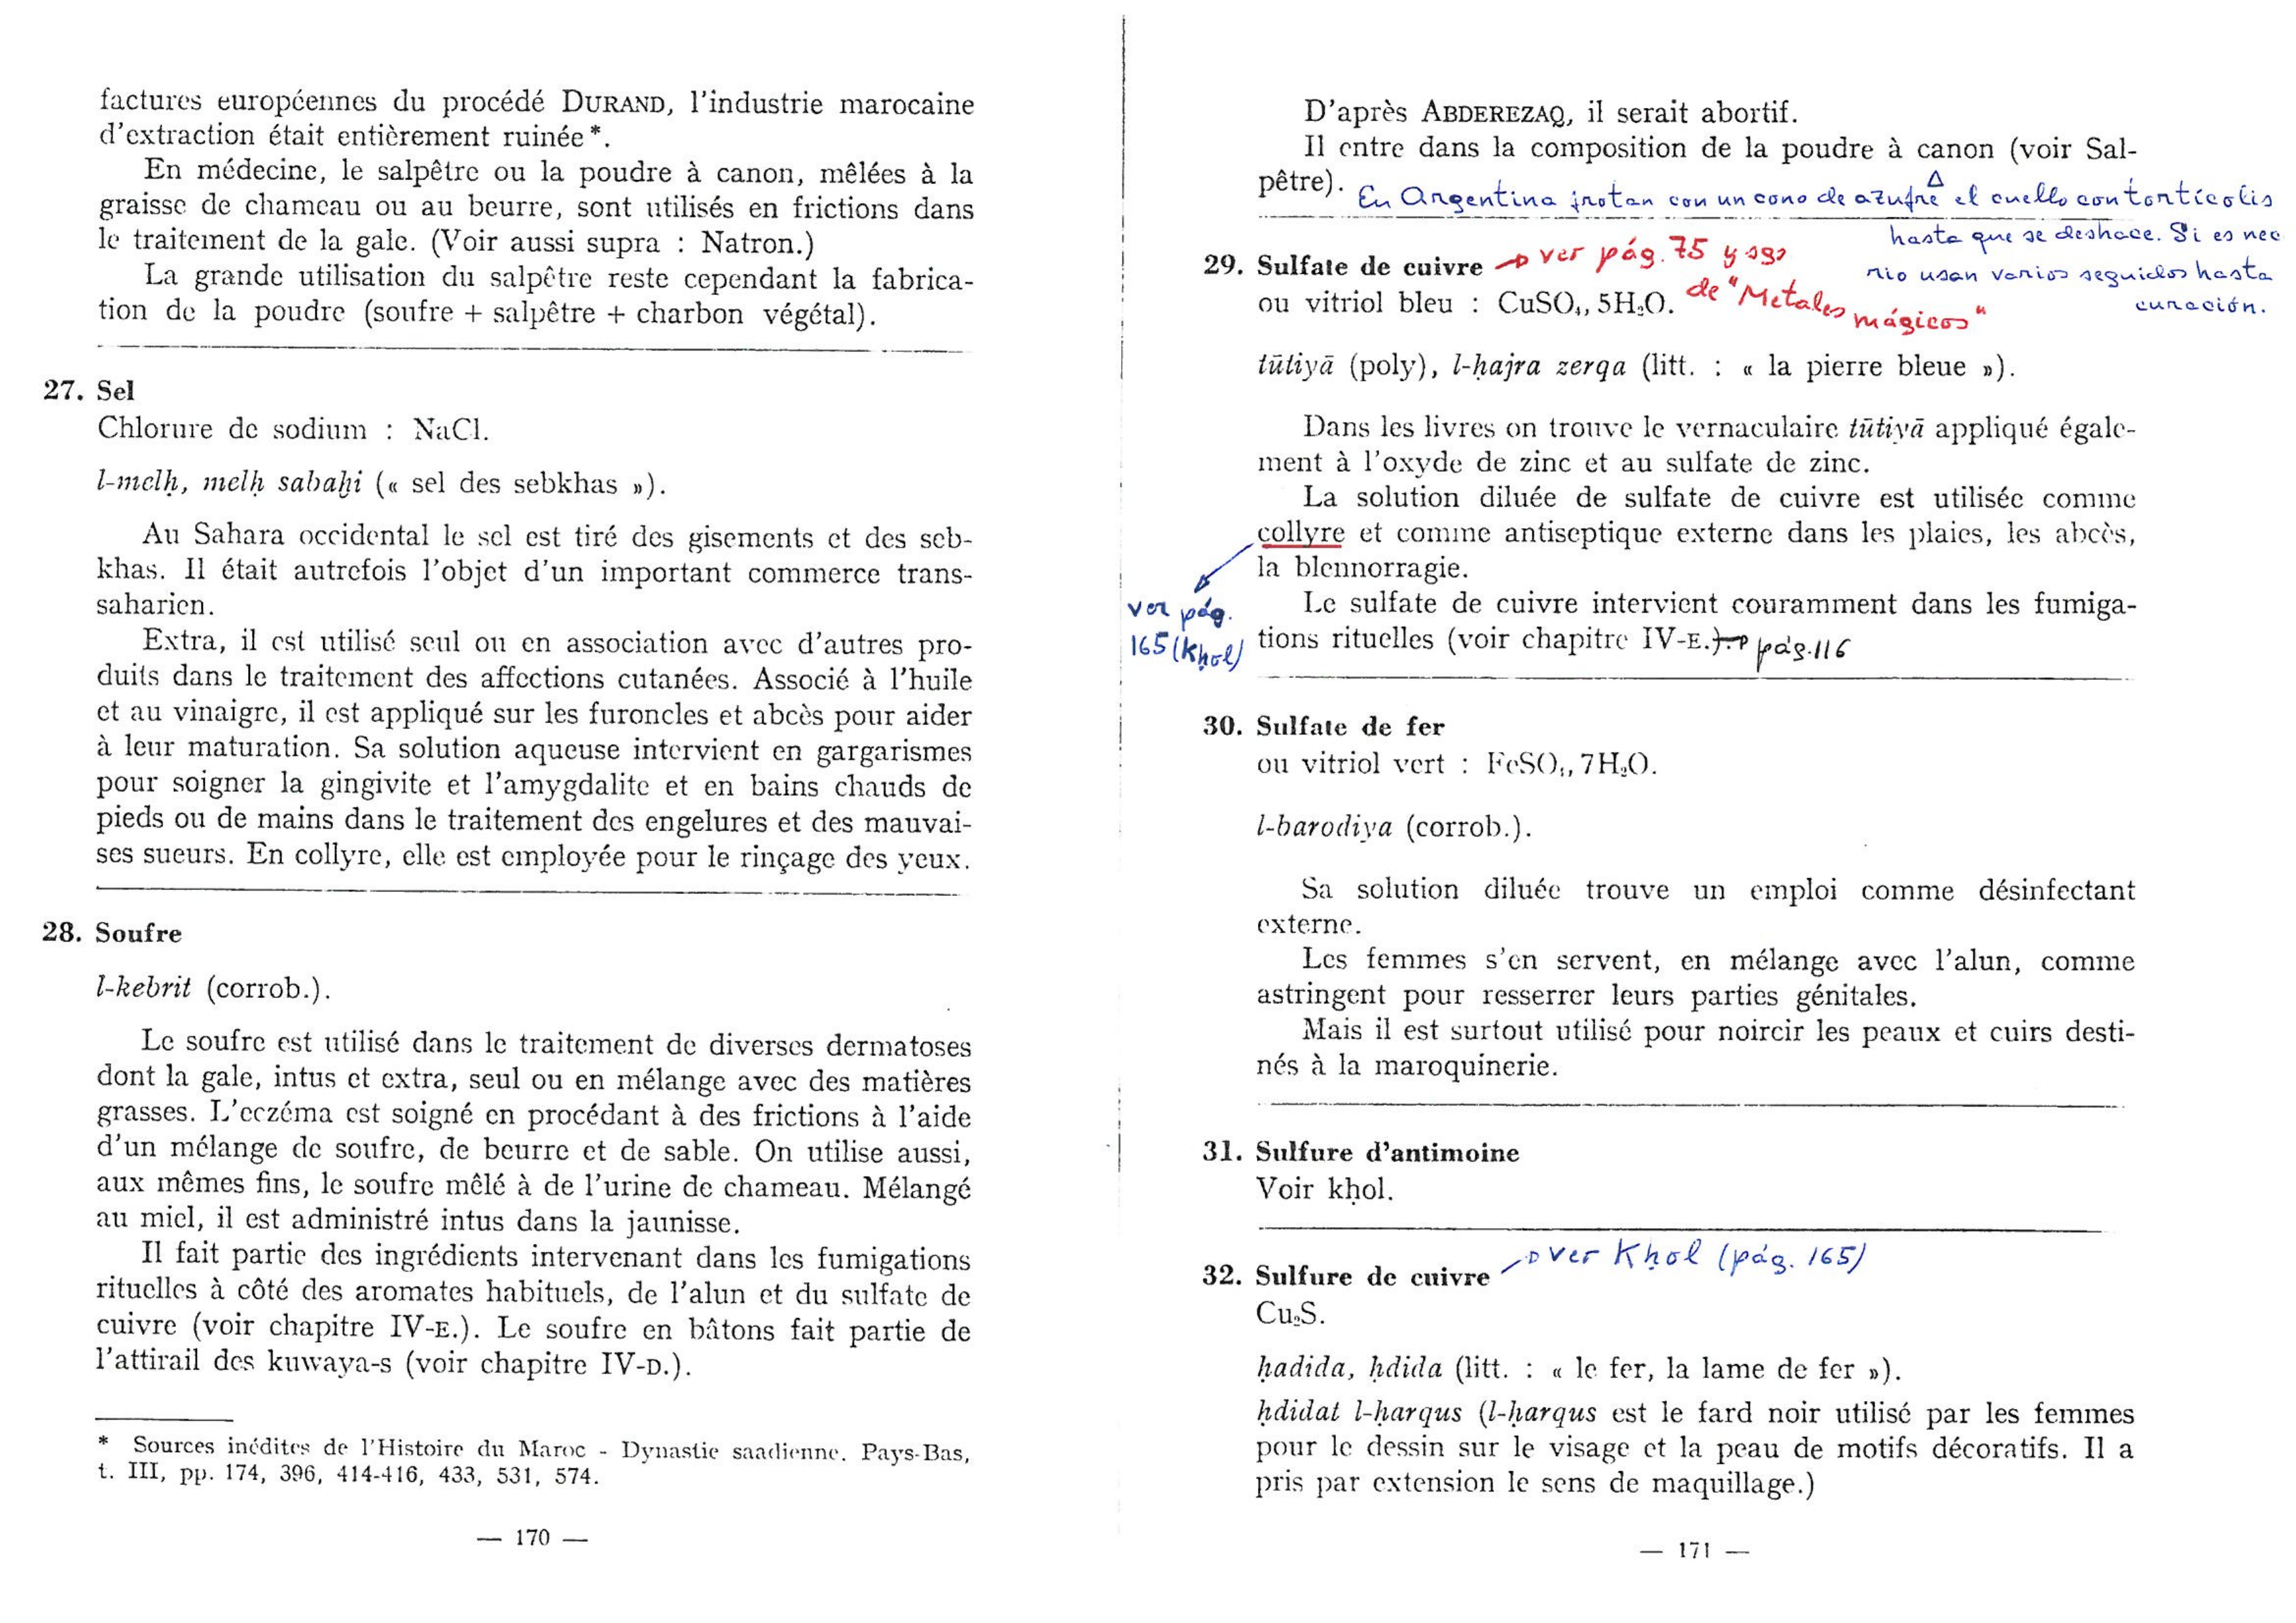 factures européennes du procédé DURAND, l'industrie marocaine
d'extraction était entièrement ruinée*.
En médecine, le salpêtre ou la poudre à canon, mêlées à la
graisse de chameau ou au beurre, sont utilisés en frictions dans
le traitement de la gale. (Voir aussi supra : Natron.)
La grande utilisation du salpêtre reste cependant la fabrica-
tion de la poudre (soufre + salpêtre + charbon végétal).
27. Sel
Chlorure de sodium : NaCl.
l-melḥ, melḥ sabaḫi (« sel des sebkhas »).
Au Sahara occidental le sel est tiré des gisements et des seb-
khas. Il était autrefois l'objet d'un important commerce trans-
saharien.
Extra, il est utilisé seul ou en association avec d'autres pro-
duits dans le traitement des affections cutanées. Associé à l'huile
et au vinaigre, il est appliqué sur les furoncles et abcès pour aider
à leur maturation. Sa solution aqueuse intervient en gargarismes
pour soigner la gingivite et l'amygdalite et en bains chauds de
pieds ou de mains dans le traitement des engelures et des mauvai-
ses sueurs. En collyre, elle est employée pour le rinçage des yeux.
28. Soufre
l-kebrit (corrob.).
Le soufre est utilisé dans le traitement de diverses dermatoses
dont la gale, intus et extra, seul ou en mélange avec des matières
grasses. L'eczéma est soigné en procédant à des frictions à l'aide
d'un mélange de soufre, de beurre et de sable. On utilise aussi,
aux mêmes fins, le soufre mêlé à de l'urine de chameau. Mélangé
au miel, il est administré intus dans la jaunisse.
Il fait partie des ingrédients intervenant dans les fumigations
rituelles à côté des aromates habituels, de l'alun et du sulfate de
cuivre (voir chapitre IV-E.). Le soufre en bâtons fait partie de
l'attirail des kuwaya-s (voir chapitre IV-D.).
* Sources inédites de l'Histoire du Maroc - Dynastie saadienne. Pays-Bas,
t. III, pp. 174, 396, 414-416, 433, 531, 574.
— 170 —
D'après ABDEREZAQ, il serait abortif.
Il entre dans la composition de la poudre à canon (voir Sal-
pêtre). En Argentina frotan con un cono de azufre el cuello con tortícolis
hasta que se deshace. Si es nec
rio usan varios seguidos hasta
curación.
29. Sulfate de cuivre → ver pág. 75 y sgs
de "Metales mágicos"
ou vitriol bleu : CuSO₄, 5H₂O.
tūtiyā (poly), l-ḥajra zerqa (litt. : « la pierre bleue »).
Dans les livres on trouve le vernaculaire tūtiyā appliqué égale-
ment à l'oxyde de zinc et au sulfate de zinc.
La solution diluée de sulfate de cuivre est utilisée comme
collyre et comme antiseptique externe dans les plaies, les abcès,
la blennorragie.
ver pág.
165 (Kḥol)
Le sulfate de cuivre intervient couramment dans les fumiga-
tions rituelles (voir chapitre IV-E.). → pág. 116
30. Sulfate de fer
ou vitriol vert : FeSO₄, 7H₂O.
l-barodiya (corrob.).
Sa solution diluée trouve un emploi comme désinfectant
externe.
Les femmes s'en servent, en mélange avec l'alun, comme
astringent pour resserrer leurs parties génitales.
Mais il est surtout utilisé pour noircir les peaux et cuirs desti-
nés à la maroquinerie.
31. Sulfure d'antimoine
Voir kḥol.
32. Sulfure de cuivre → ver Kḥol (pág. 165)
Cu₂S.
ḥadida, ḥdida (litt. : « le fer, la lame de fer »).
ḥdidat l-ḥarqus (l-ḥarqus est le fard noir utilisé par les femmes
pour le dessin sur le visage et la peau de motifs décoratifs. Il a
pris par extension le sens de maquillage.)
— 171 —